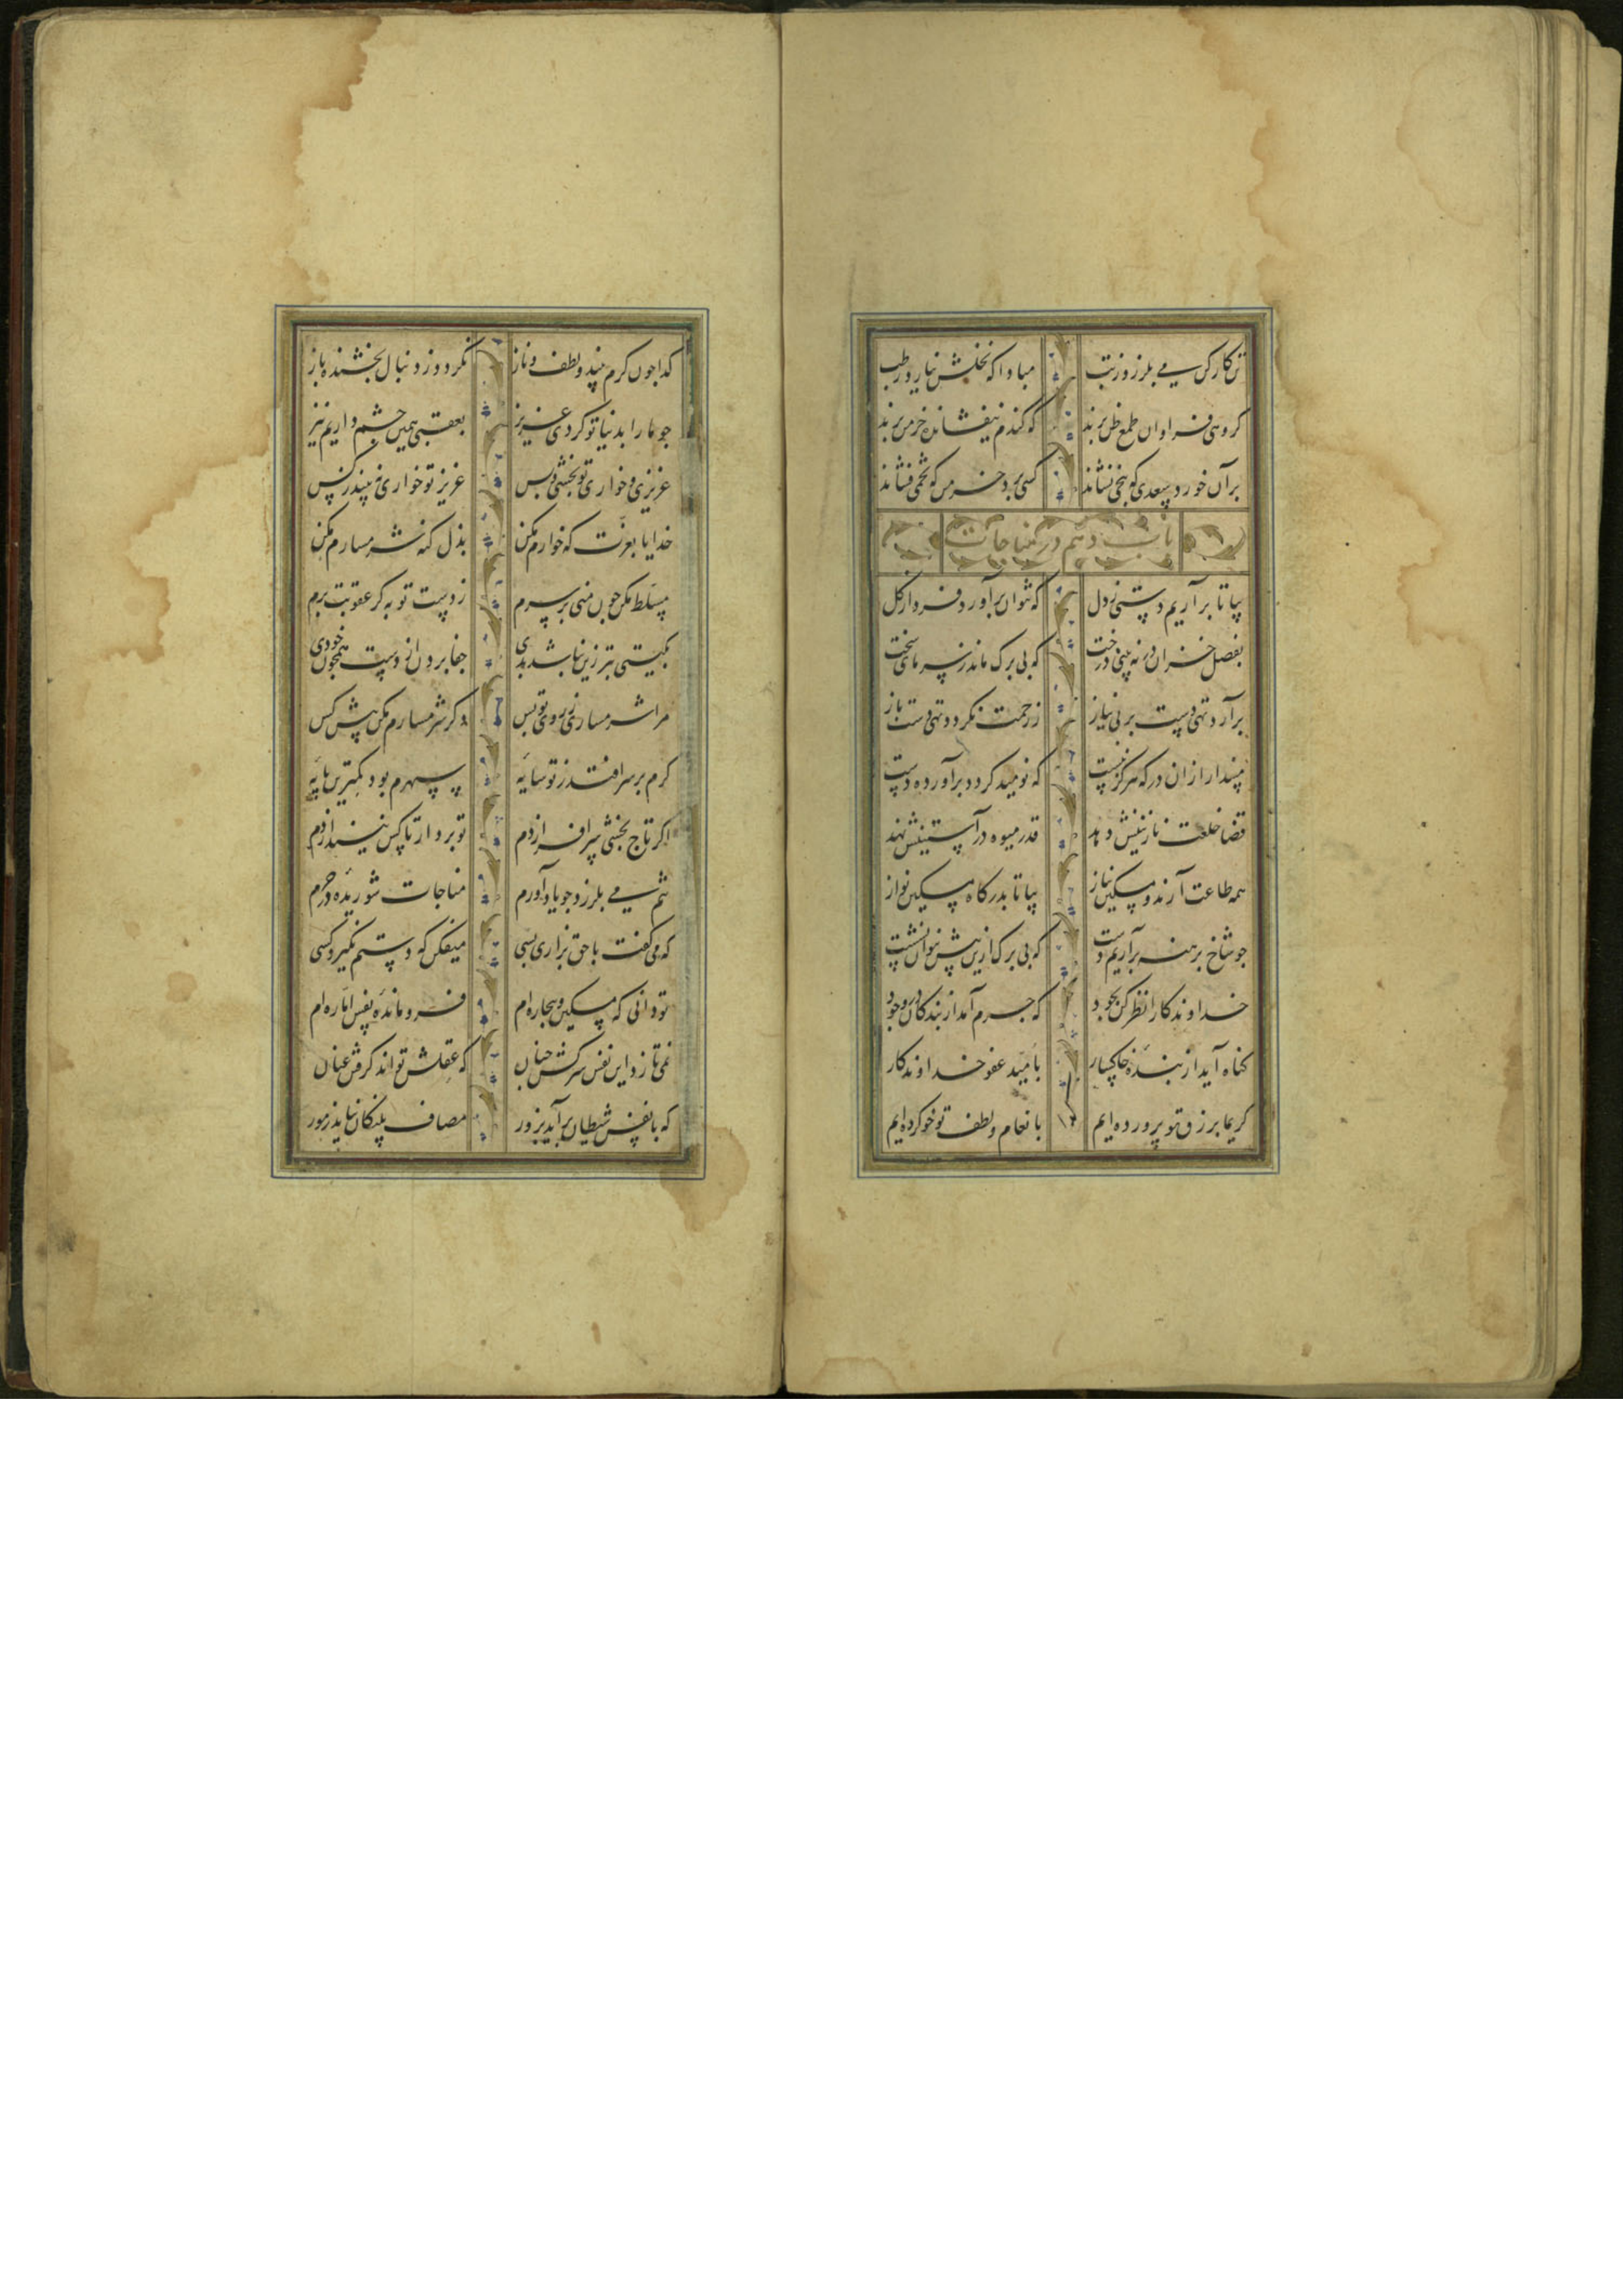 تن کارکن می بلرزد ز تب مبادا که نخلش نیارد رطب
کروهی فراوان طمع ظن برند که کندم نیفشانده خرمن برند
بر آن خورد سعدی که بیخی نشاند کسی برد خرمن که تخمی فشاند
باب دهم در مناجات
بیا تا برآریم دستی ز دل که نتوان برآورد فردا ز کل
بفصل خزان در نه بینی درخت که بی برک ماند ز سرمای سخت
برآرد تهی دست بر بی نیاز ز رحمت نکردد تهی دست باز
مپندار از آن در که هرکز نبست که نومید کردد برآورده دست
قضا خلعت نازنینش دهد قدر میوه در آستینش نهد
همه طاعت آرند و مسکین نیاز بیا تا بدرکاه مسکین نواز
جو شاخ برهنه برآریم دست که بی برک ازین بیش نتوان نشست
خداوندکارا نظر کن بجود که جرم آمد از بندکان در وجود
کناه آید از بنده خاکسار بامید عفو خداوندکار
کریما برزق تو پرورده ایم بانعام و لطف تو خو کرده ایم
کدا جون کرم بیند و لطف و ناز نکردد ز دنبال بخشنده باز
جو ما را بدنیا تو کردی عزیز بعقبی همین جشم داریم نیز
عزیزی و خواری تو بخشی و بس عزیز تو خواری نبیند ز کس
خدایا بعزت که خوارم مکن بذل کنه شرمسارم مکن
مسلط مکن جون منی بر سرم ز دست تو به کر عقوبت برم
بکیتی بتر زین نباشد بدی جفا بردن از دست همجون خودی
مرا شرمساری ز روی تو بس دکر شرمسارم مکن پیش کس
کرم بر سر افتد ز تو سایه سپهرم بود کمترین پایه
اکر تاج بخشی سر افرازدم تو بردار تا کس نیندازدم
تنم می بلرزد جو یاد آورم مناجات شوریده در حرم
که می کفت با حق بزاری بسی میفکن که دستم نکیرد کسی
تو دانی که مسکین و بیجاره ام فرو مانده نفس اماره ام
نمی تازد این نفس سرکش جنان که عقلش تواند کرفتن عنان
که با نفس و شیطان برآید بزور مصاف پلنکان نیاید ز مور